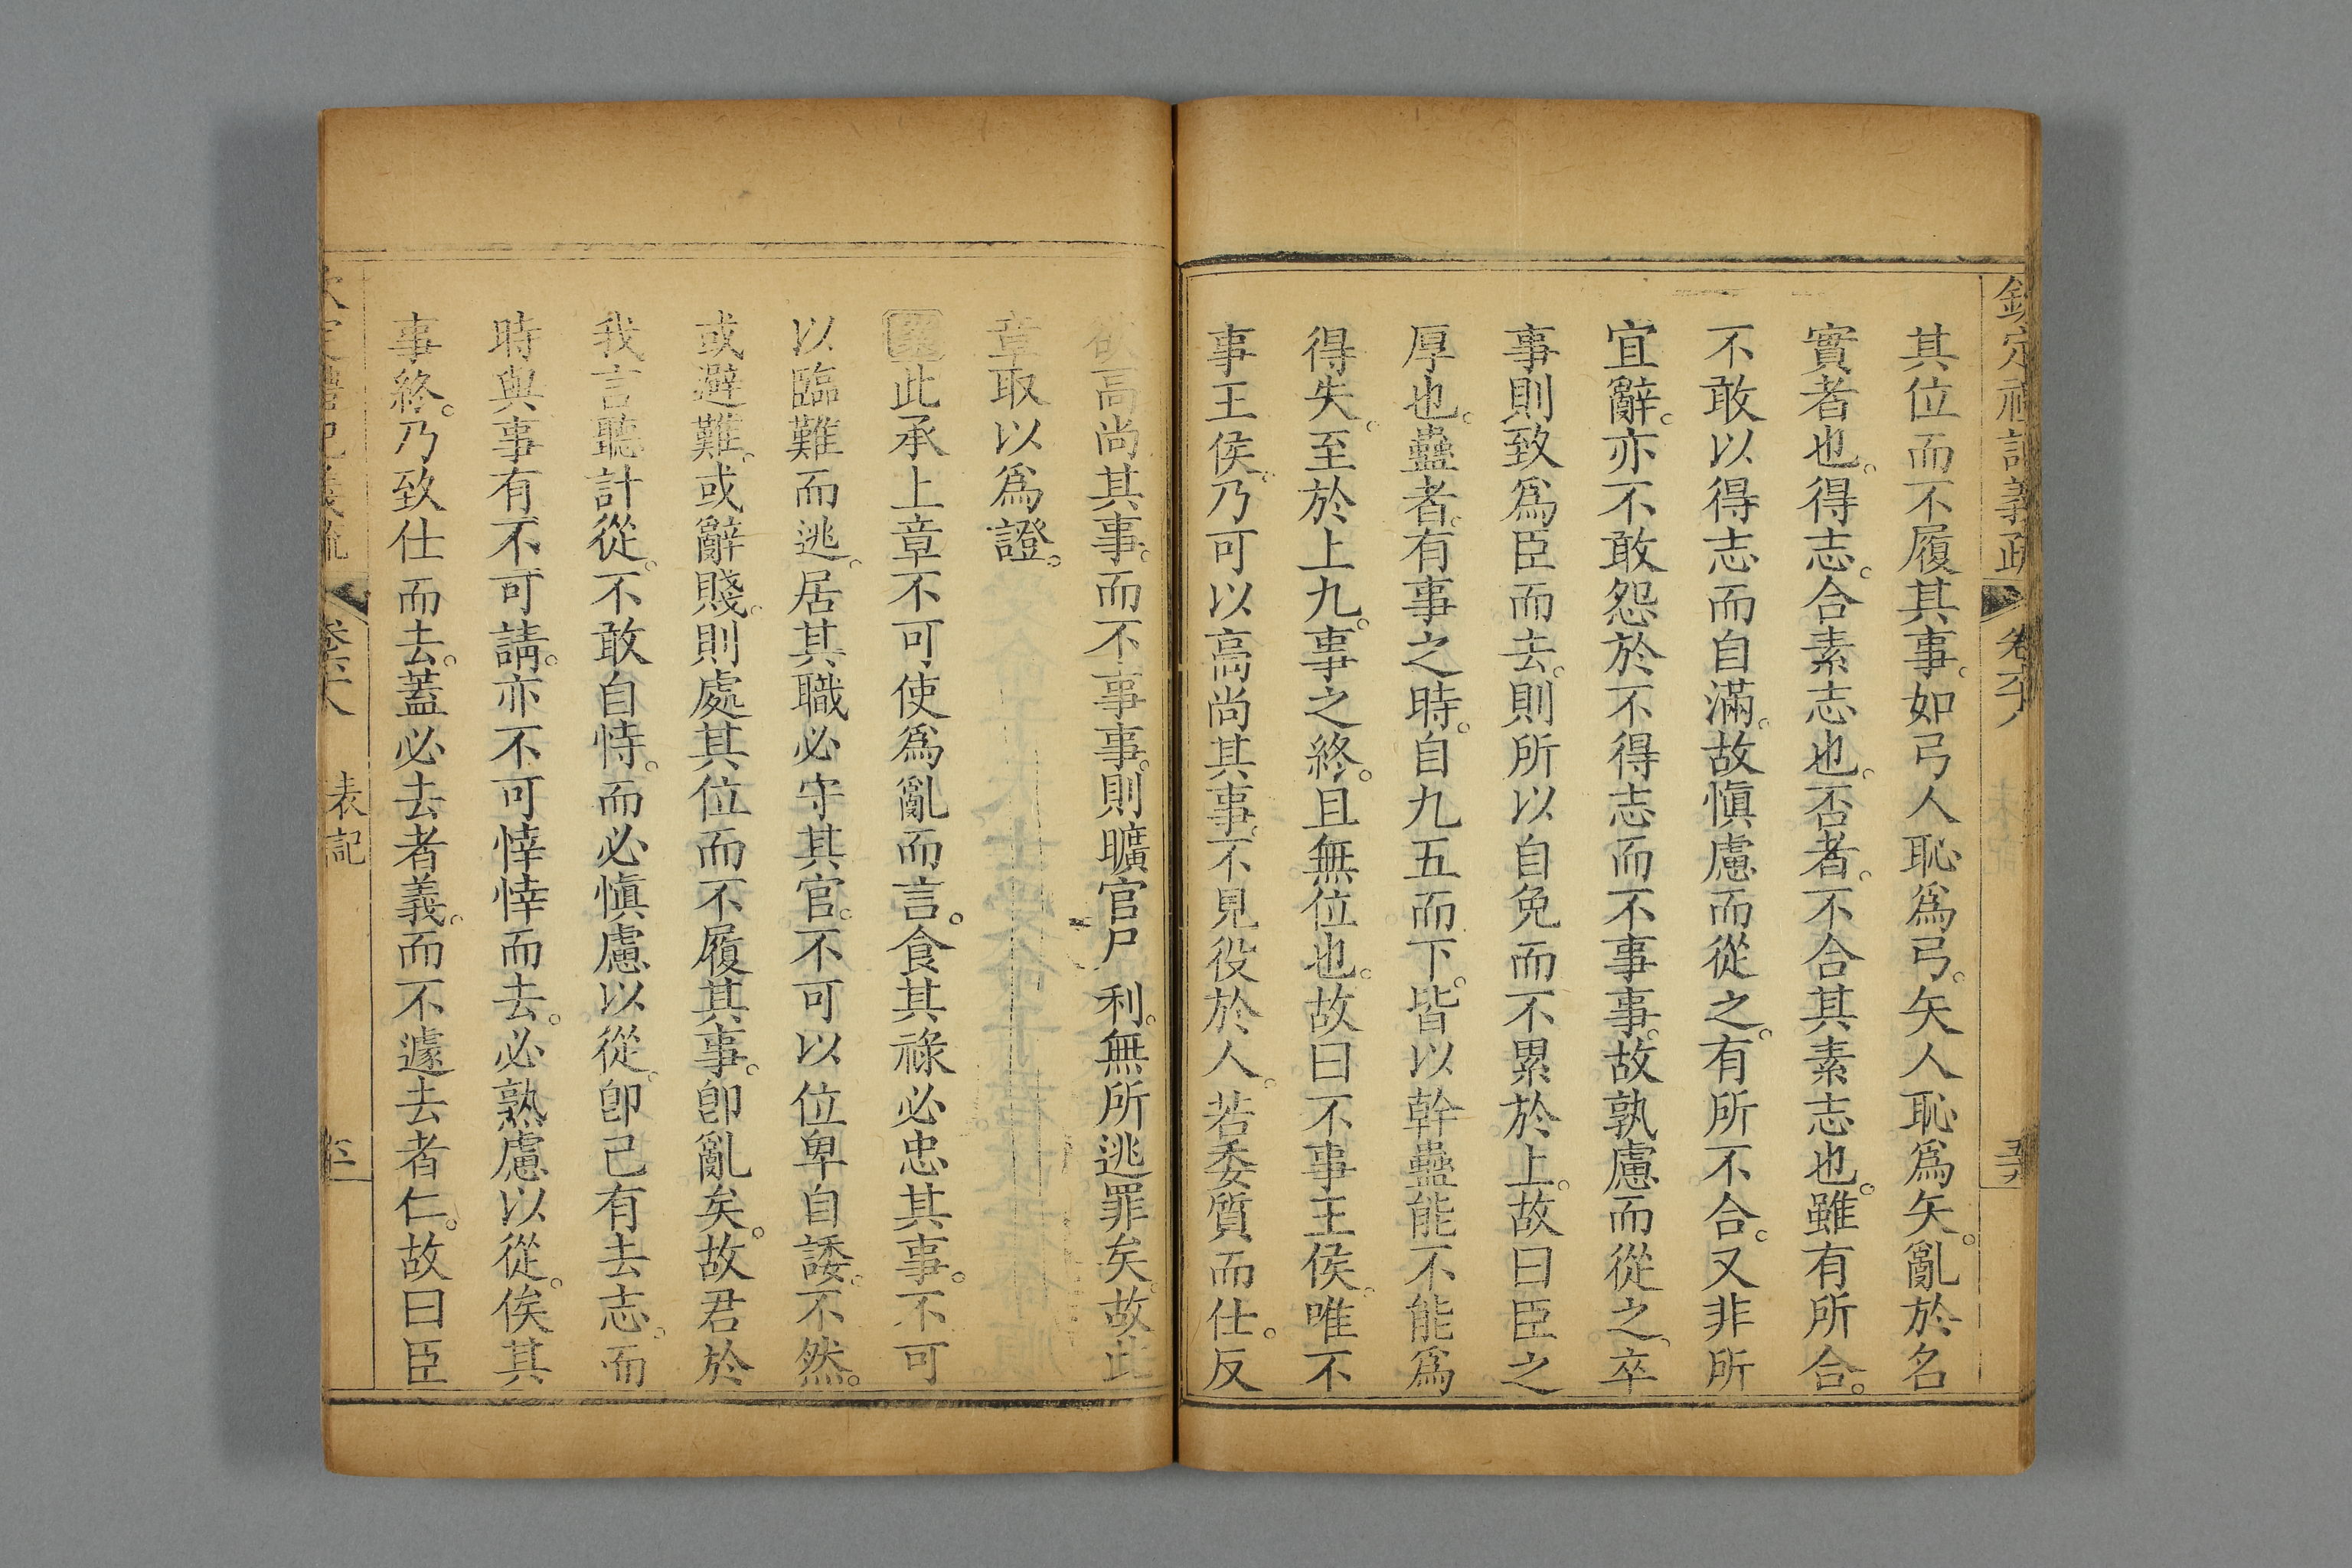 欽定禮記義疏 卷六十八
其位而不履其事。如弓人恥爲弓。矢人恥爲矢。亂於名
實者也。得志。合素志也。否者。不合其素志也。雖有所合。
不敢以得志而自滿。故愼慮而從之。有所不合。又非所
宜辭。亦不敢怨於不得志而不事事。故孰慮而從之、卒
事則致爲臣而去。則所以自免而不累於上。故曰臣之
厚也。蠱者。有事之時。自九五而下。皆以幹蠱能不能爲
得失。至於上九。事之終。且無位也。故曰不事王侯。唯不
事王侯。乃可以高尚其事。不見役於人。若委質而仕。反
欲高尚其事。而不事事。則曠官尸利。無所逃罪矣。故此
章取以爲證。
此承上章不可使爲亂而言。食其祿必忠其事。不可
以臨難而逃。居其職必守其官。不可以位卑自諉。不然。
或避難。或辭賤。則處其位而不履其事。卽亂矣。故君於
我言聽計從。不敢自恃。而必愼慮以從。卽己有去志。而
時與事有不可請。亦不可悻悻而去。必熟慮以從。俟其
事終。乃致仕而去。蓋必去者義。而不遽去者仁。故曰臣
欽定禮記義疏 卷六十八 表記